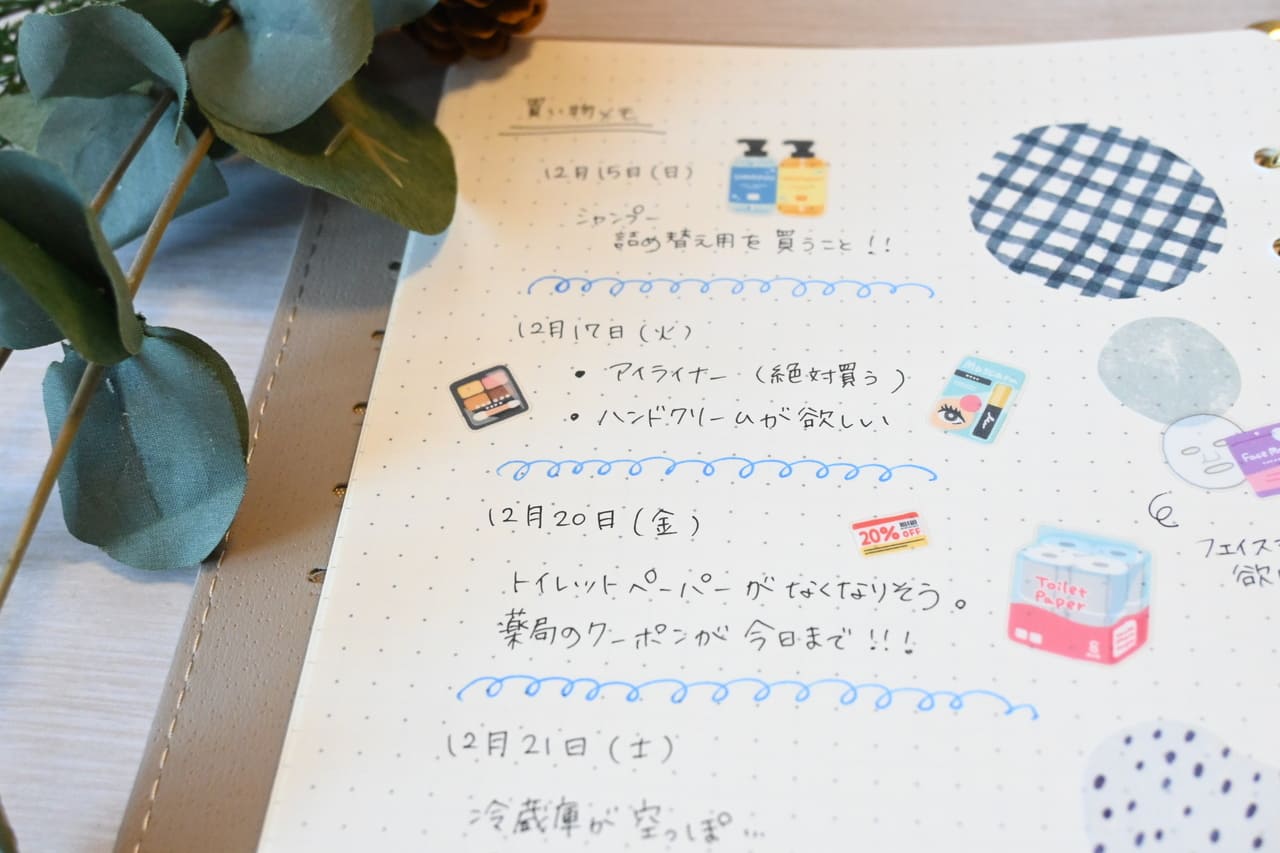 買い物メモ
12月15日(日)
シャンプー
詰め替え用を買うこと!!
12月17日(火)
• アイライナー (絶対買う)
• ハンドクリームが欲しい
Mascara
12月20日(金)
20% OFF
トイレットペーパーがなくなりそう。
薬局のクーポンが今日まで!!!
Toilet
Paper
8
Face M
フェイス
欲
12月21日(土)
冷蔵庫が空っぽ…